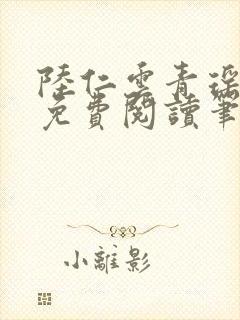 陸仁雲青瑤
免費閱讀筆
小離影